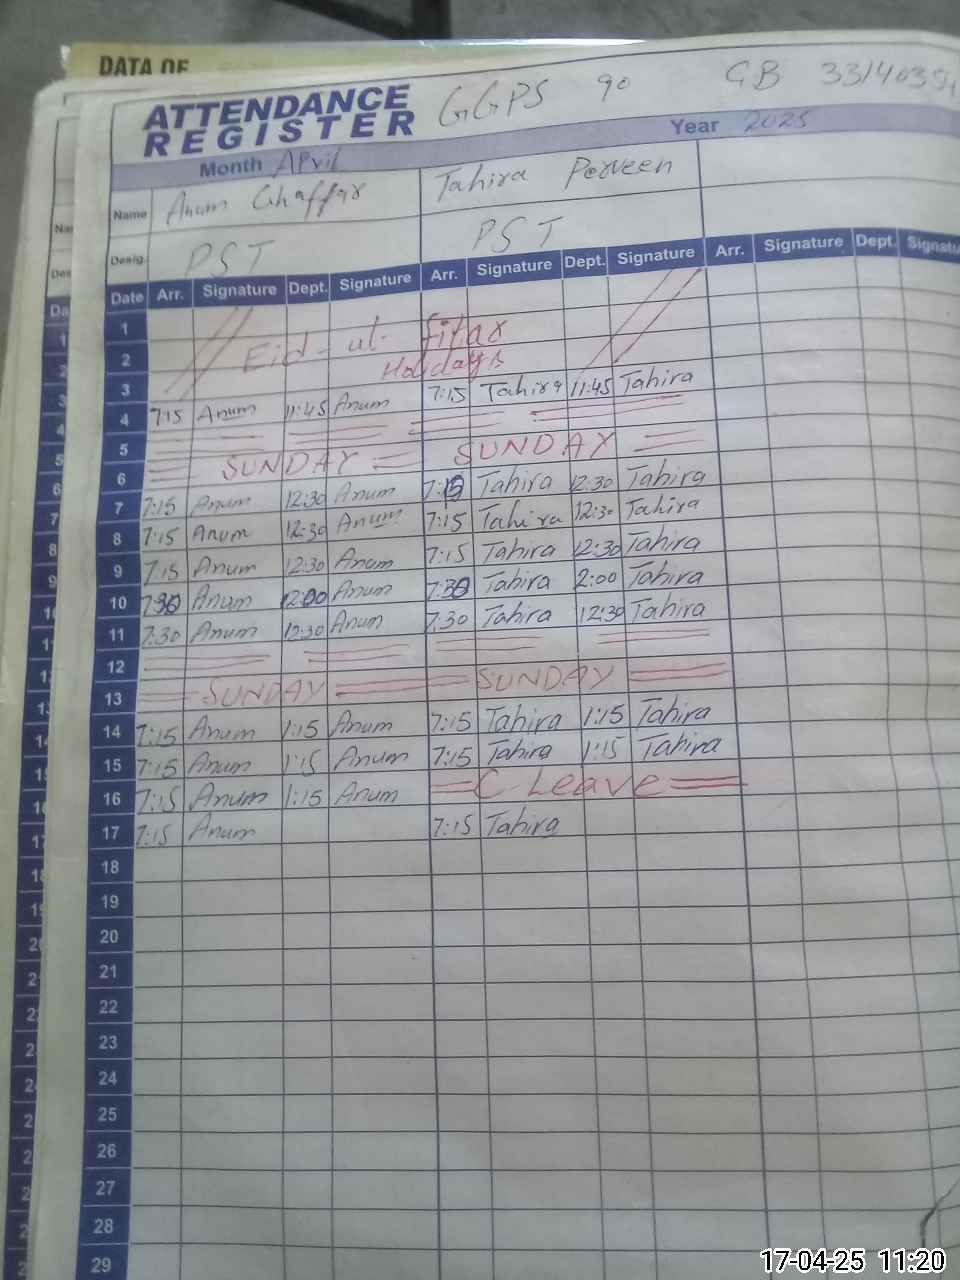 DATA OF
ATTENDANCE REGISTER GGPS 90 GB
Month April Year 2025
Name Anum Ghaffar Tahira Perveen
Desig. PST PST
Date Arr. Signature Dept. Signature Arr. Signature Dept. Signature Arr. Signature Dept. Signatu
1
2 Eid-ut-fitar
3 Holidays
4 7:15 Anum 11:45 Anum 7:15 Tahira 11:45 Tahira
5
6 SUNDAY SUNDAY
7 7:15 Anum 12:30 Anum 7:15 Tahira 12:30 Tahira
8 7:15 Anum 12:30 Anum 7:15 Tahira 12:30 Tahira
9 7:15 Anum 12:30 Anum 7:15 Tahira 12:30 Tahira
10 7:30 Anum 12:00 Anum 7:30 Tahira 2:00 Tahira
11 7:30 Anum 12:30 Anum 7:30 Tahira 12:30 Tahira
12
13 SUNDAY SUNDAY
14 7:15 Anum 1:15 Anum 7:15 Tahira 1:15 Tahira
15 7:15 Anum 1:15 Anum 7:15 Tahira 1:15 Tahira
16 7:15 Anum 1:15 Anum C Leave
17 7:15 Anum 7:15 Tahira
18
19
20
21
22
23
24
25
26
27
28
29
17-04-25 11:20